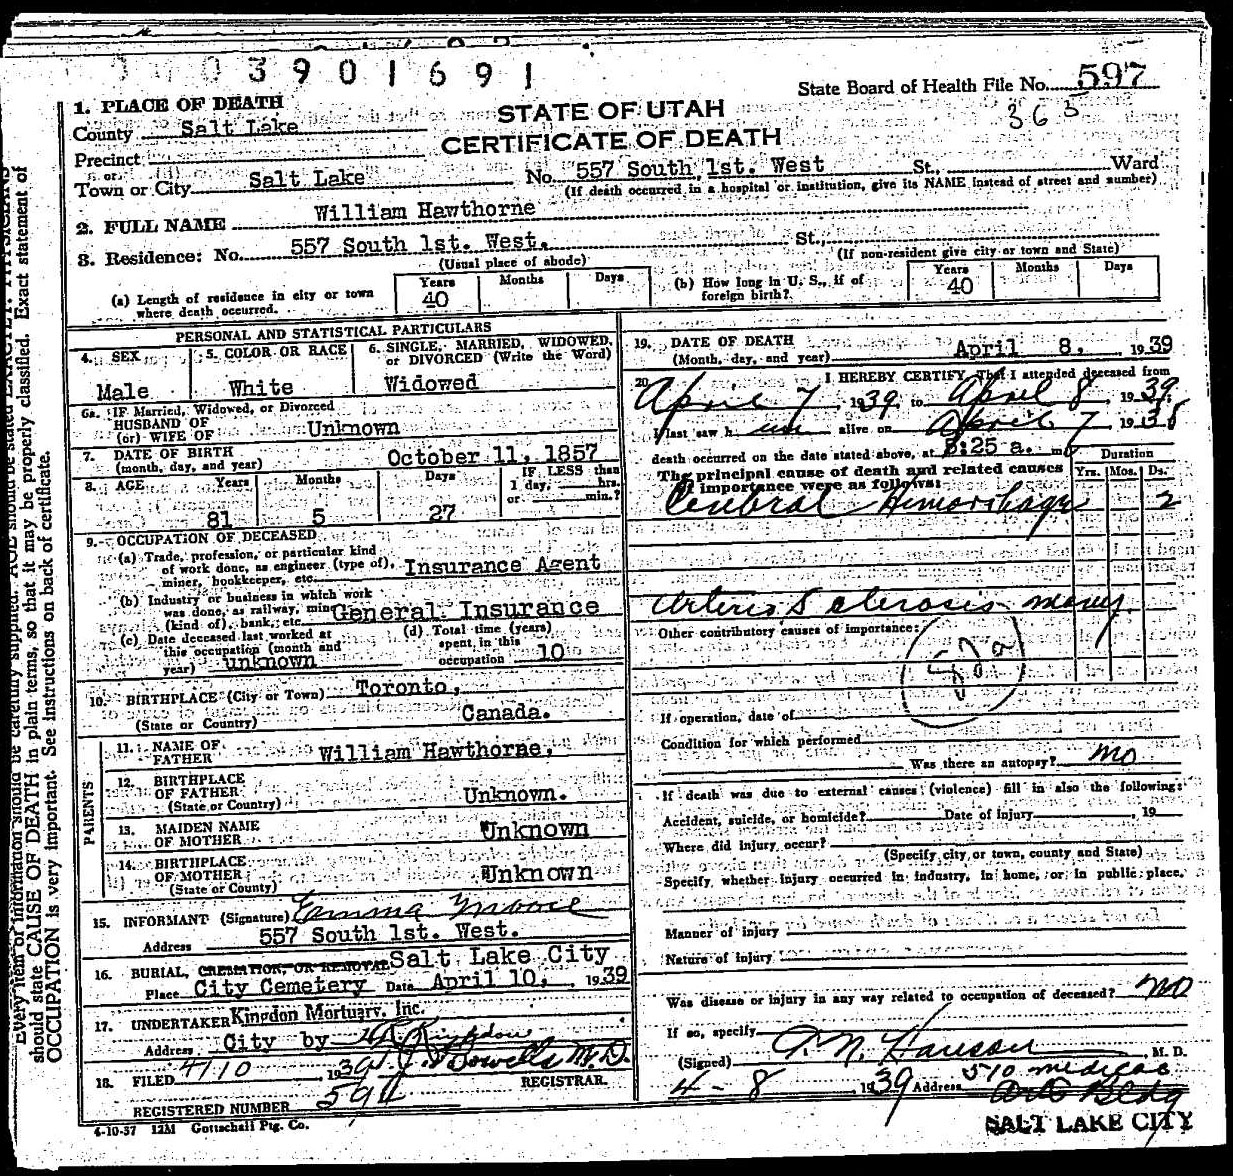 03901691
State Board of Health File No. 597
363
STATE OF UTAH
CERTIFICATE OF DEATH
1. PLACE OF DEATH
County Salt Lake
Precinct
or
Town or City Salt Lake No. 557 South 1st. West St., Ward
(If death occurred in a hospital or institution, give its NAME instead of street and number)
2. FULL NAME William Hawthorne
3. Residence: No. 557 South 1st. West. St.,
(Usual place of abode) (If non-resident give city or town and State)
(a) Length of residence in city or town where death occurred. Years 40 Months Days
(b) How long in U. S., if of foreign birth? Years 40 Months Days
PERSONAL AND STATISTICAL PARTICULARS
4. SEX Male
5. COLOR OR RACE White
6. SINGLE, MARRIED, WIDOWED, or DIVORCED (Write the Word) Widowed
6a. IF Married, Widowed, or Divorced
HUSBAND OF
(or) WIFE OF Unknown
7. DATE OF BIRTH
(month, day, and year) October 11, 1857
8. AGE Years 81 Months 5 Days 27 IF LESS than 1 day, hrs. or min.?
9. OCCUPATION OF DECEASED
(a) Trade, profession, or particular kind
of work done, as engineer (type of),
miner, bookkeeper, etc. Insurance Agent
(b) Industry or business in which work
was done, as railway, mine
(kind of), bank, etc. General Insurance
(c) Date deceased last worked at
this occupation (month and
year) unknown
(d) Total time (years)
spent in this
occupation 10
10. BIRTHPLACE (City or Town) Toronto,
(State or Country) Canada.
PARENTS
11. NAME OF FATHER William Hawthorne,
12. BIRTHPLACE OF FATHER
(State or Country) Unknown.
13. MAIDEN NAME OF MOTHER Unknown
14. BIRTHPLACE OF MOTHER
(State or County) Unknown
15. INFORMANT (Signature) Emma Moore
Address 557 South 1st. West.
16. BURIAL, CREMATION, OR REMOVAL Salt Lake City
Place City Cemetery Date April 10, 1939
17. UNDERTAKER Kingdon Mortuary, Inc.
Address City by
18. FILED 4/10 1939 M.D.
REGISTRAR.
REGISTERED NUMBER 594
4-10-37 12M Gottschall Ptg. Co.
19. DATE OF DEATH
(Month, day, and year) April 8, 1939
20. I HEREBY CERTIFY, That I attended deceased from
April 7, 1939, to April 8 1939.
I last saw him alive on April 7 1938
death occurred on the date stated above, at 8:25 a. m.
The principal cause of death and related causes
of importance were as follows:
Duration
Yrs. Mos. Ds.
Cerebral Hemorrhage 2
Arterio Sclerosis many
Other contributory causes of importance:
If operation, date of
Condition for which performed
Was there an autopsy? no
If death was due to external causes (violence) fill in also the following:
Accident, suicide, or homicide? Date of injury , 19
Where did injury occur?
(Specify city or town, county and State)
Specify whether injury occurred in industry, in home, or in public place.
Manner of injury
Nature of injury
Was disease or injury in any way related to occupation of deceased? no
If so, specify
(Signed) A. N. Hanson, M. D.
4 - 8, 1939 Address 510 Medical
Arts Bldg
SALT LAKE CITY
should state CAUSE OF DEATH in plain terms, so that it may be properly classified. Exact statement of
OCCUPATION is very important. See instructions on back of certificate.